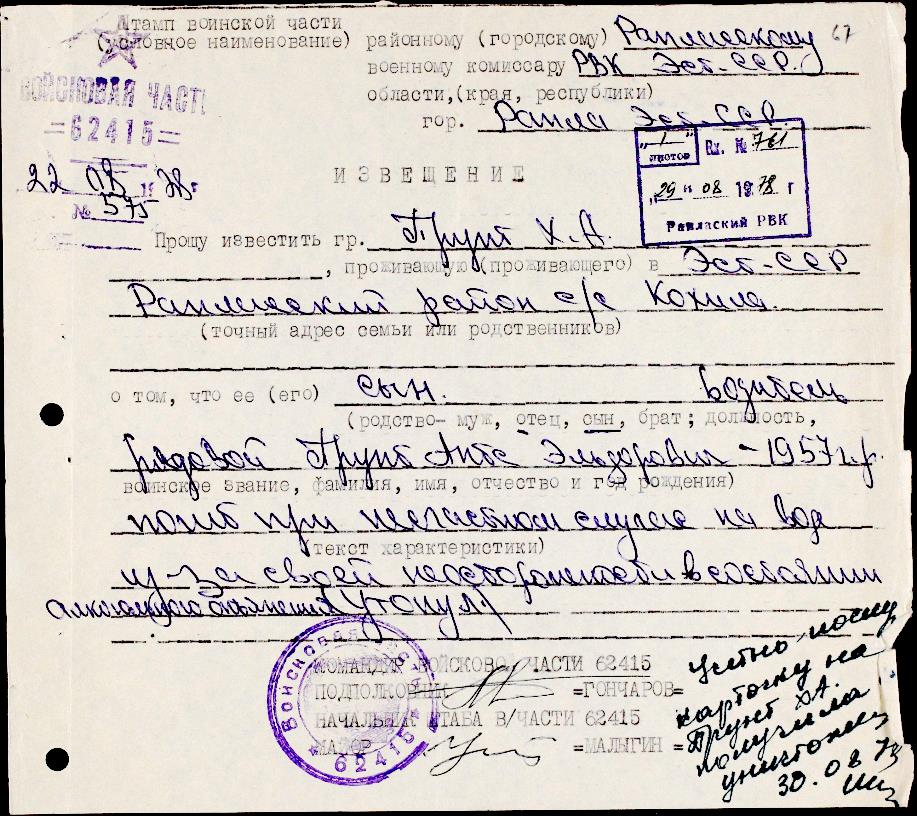 Штамп воинской части
(условное наименование)
ВОЙСКОВАЯ ЧАСТЬ
=62415=
22 08 1978г
№ 575
67
районному (городскому) Рапласкому
военному комиссару РВК Эст-ССР.
области,(края, республики)
гор. Рапла Эст-ССР.
„1" листов
Вх. № 761
„29" 08 1978 г
Раплаский РВК
ИЗВЕЩЕНИЕ
Прошу известить гр. Прунт Х.А.
, проживающую (проживающего) в Эст-ССР
Раплаский район с/с Кохила.
(точный адрес семьи или родственников)
о том, что ее (его) сын. водитель
(родство- муж, отец, сын, брат; должность,
рядовой Прунт Антс Эльдорович - 1957 г.р.
воинское звание, фамилия, имя, отчество и год рождения)
погиб при несчастном случае на воде
(текст характеристики)
из-за своей неосторожности в состоянии
алкогольного опьянения (Утонул)
КОМАНДИР ВОЙСКОВОЙ ЧАСТИ 62415
ПОДПОЛКОВНИК =ГОНЧАРОВ=
НАЧАЛЬНИК ШТАБА В/ЧАСТИ 62415
МАЙОР =МАЛЫГИН =
ВОЙСКОВАЯ ЧАСТЬ
* 62415 *
карточку на
Прунт ХА.
получила
30.08 78